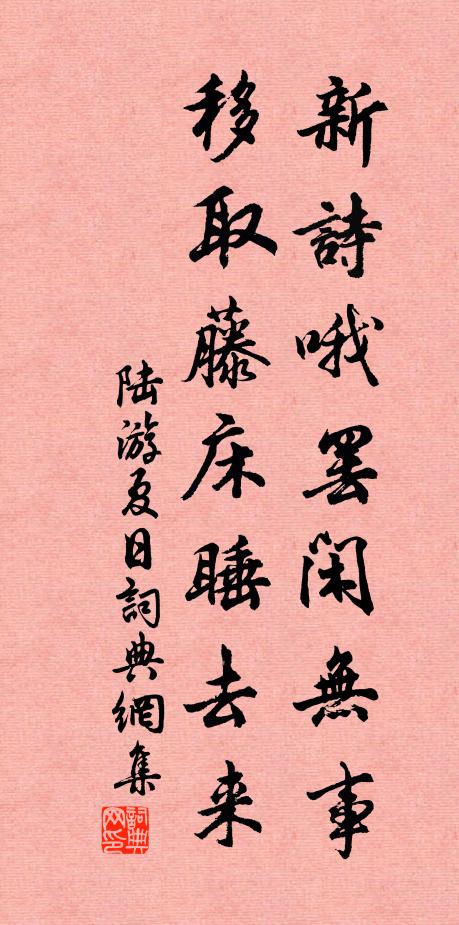 新詩哦罷閑無事
移取藤床睡去来
陆游夏日詞典網集
詞典网印